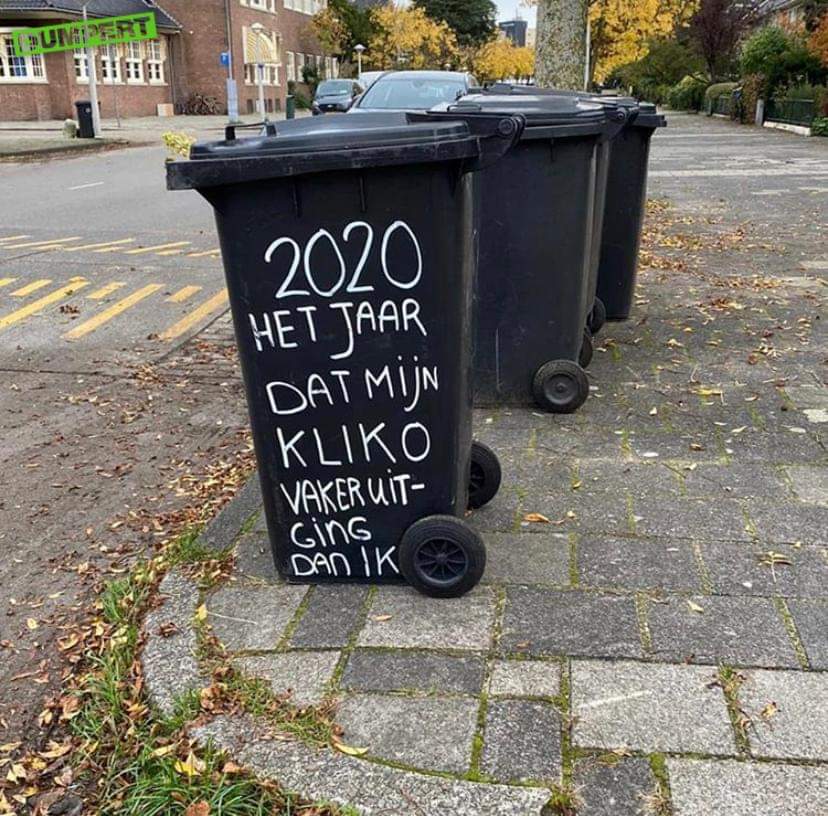 DUMPERT
2020
HET JAAR
DAT MIJN
KLIKO
VAKER UIT-
GING
DAN IK